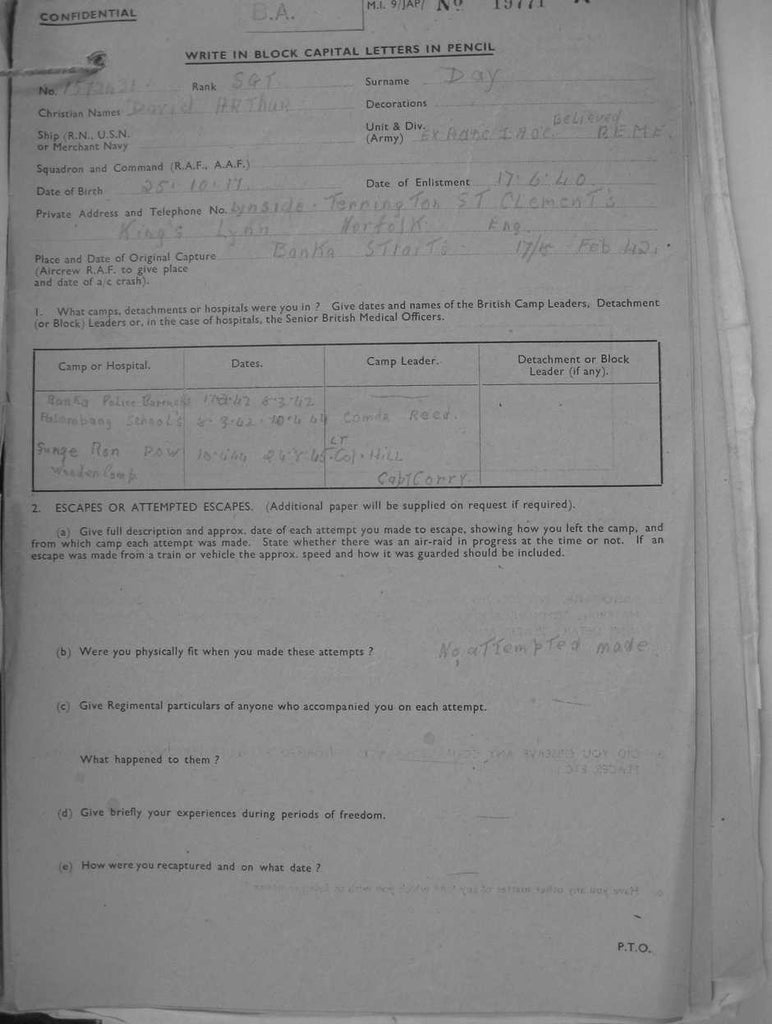 CONFIDENTIAL
B.A.
M.I. 9/JAP/ No 19771
WRITE IN BLOCK CAPITAL LETTERS IN PENCIL
No. Rank SGT Surname Day
Christian Names David ARThur Decorations
Ship (R.N., U.S.N. or Merchant Navy Unit & Div. (Army) Believed R.E.M.E.
Squadron and Command (R.A.F., A.A.F.)
Date of Birth 25.10.17 Date of Enlistment 17.6.40
Private Address and Telephone No. Lynside. Terrington ST CLemenT's
King's Lynn Norfolk Eng.
Place and Date of Original Capture Banka STraiTs Feb 42.
(Aircrew R.A.F. to give place
and date of a/c crash).
1. What camps, detachments or hospitals were you in ? Give dates and names of the British Camp Leaders, Detachment
(or Block) Leaders or, in the case of hospitals, the Senior British Medical Officers.
Camp or Hospital. Dates. Camp Leader. Detachment or Block Leader (if any).
Banka Police Barracks 8-3-42
Palembang School's 8-3-42. 10-4-44 Comdr Reed.
Sunge Ron POW 10-4-44 24-8-45 LT-Col. HiLL
Wooden Camp. CapT Corry.
2. ESCAPES OR ATTEMPTED ESCAPES. (Additional paper will be supplied on request if required).
(a) Give full description and approx. date of each attempt you made to escape, showing how you left the camp, and
from which camp each attempt was made. State whether there was an air-raid in progress at the time or not. If an
escape was made from a train or vehicle the approx. speed and how it was guarded should be included.
(b) Were you physically fit when you made these attempts ? No aTTempTed made.
(c) Give Regimental particulars of anyone who accompanied you on each attempt.
What happened to them ?
(d) Give briefly your experiences during periods of freedom.
(e) How were you recaptured and on what date ?
P.T.O.